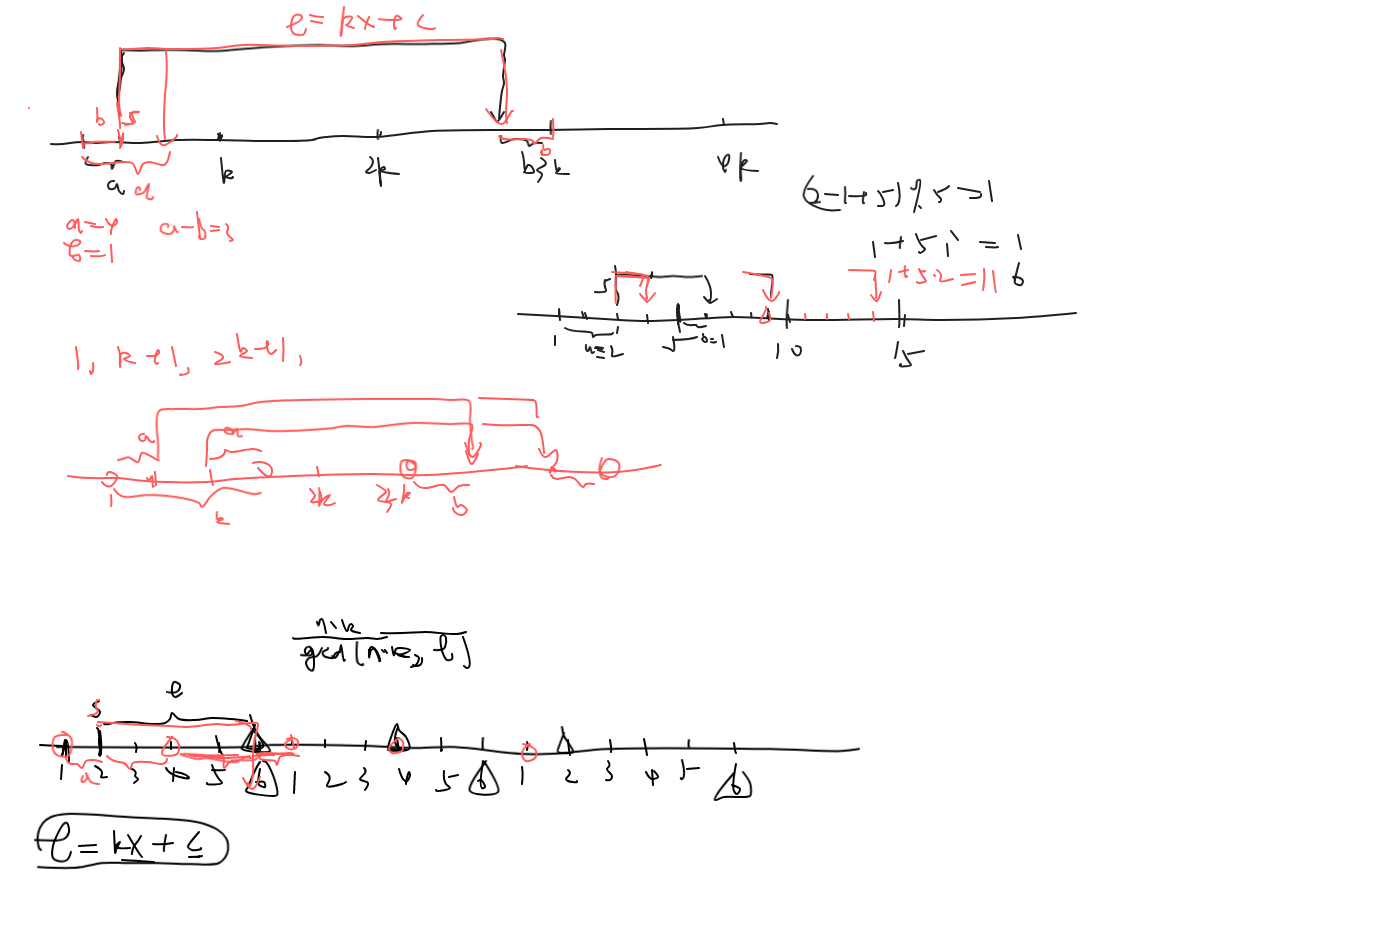 l = kx + c
b s
a a k 2k b 3k 4k
b
a=4 a-b=3
b=1
(2-1+5) % 5 = 1
1+5·1 = 1
1+5·2 = 11 6
s
1 a=2 5 b=1 10 15
1, k+1, 2k+1,
a a
1 k 2k 3k b
n·k
gcd(n·k, l)
s l
1 2 3 4 5 6 1 2 3 4 5 6 1 2 3 4 5 6
a
l = kx + c